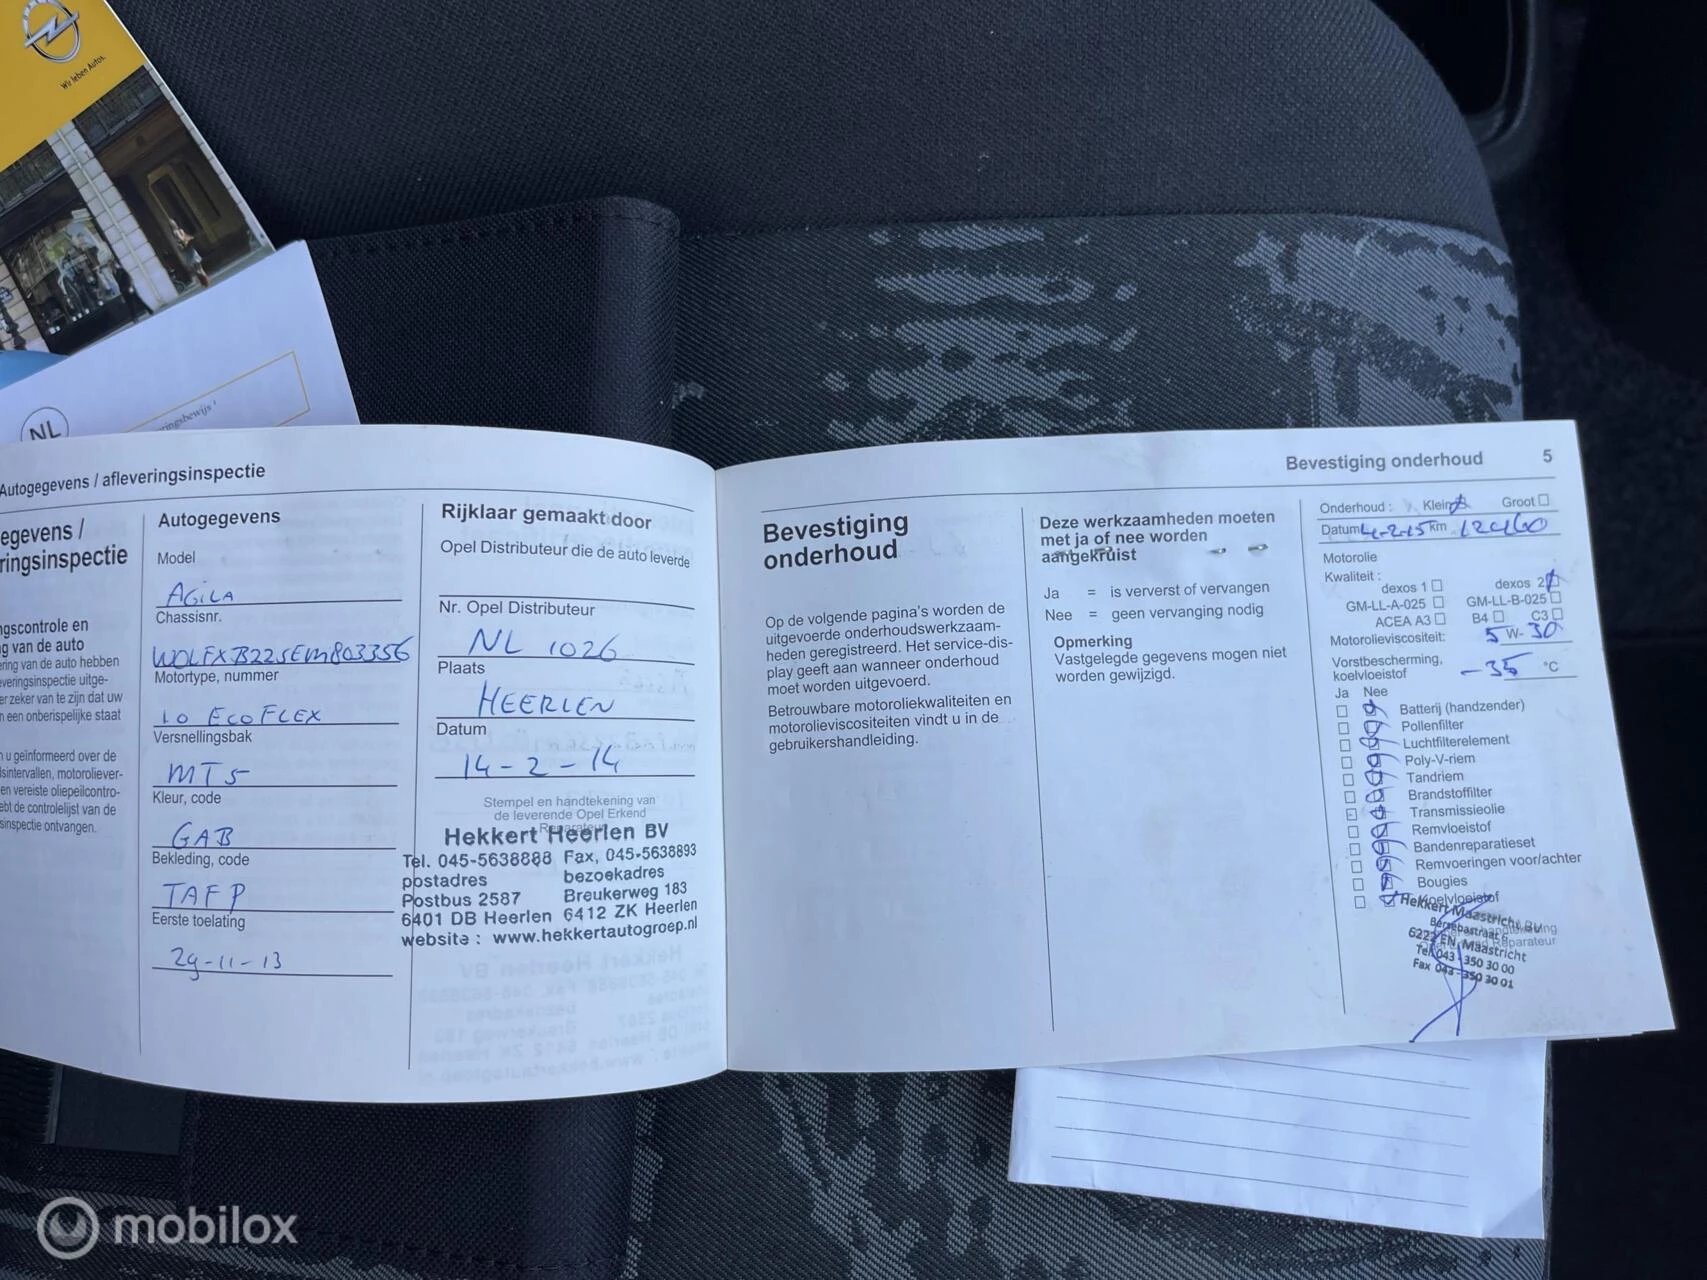 Wir leben Autos.
NL
Autogegevens / afleveringsinspectie
egevens /
ringsinspectie
ngscontrole en
g van de auto
ering van de auto hebben
everingsinspectie uitge-
er zeker van te zijn dat uw
n een onberispelijke staat
n u geïnformeerd over de
sintervallen, motoroliever-
en vereiste oliepeilcontro-
ebt de controlelijst van de
sinspectie ontvangen.
Autogegevens
Model
AGILA
Chassisnr.
W0LFXB22SEM803356
Motortype, nummer
1.0 ECOFLEX
Versnellingsbak
MT5
Kleur, code
GAB
Bekleding, code
TAFP
Eerste toelating
29-11-13
Rijklaar gemaakt door
Opel Distributeur die de auto leverde
Nr. Opel Distributeur
NL 1026
Plaats
HEERLEN
Datum
14-2-14
Stempel en handtekening van
de leverende Opel Erkend
Reparateur
Hekkert Heerlen BV
Tel. 045-5638888 Fax, 045-5638893
postadres bezoekadres
Postbus 2587 Breukerweg 183
6401 DB Heerlen 6412 ZK Heerlen
website : www.hekkertautogroep.nl
Bevestiging onderhoud 5
Bevestiging
onderhoud
Op de volgende pagina's worden de
uitgevoerde onderhoudswerkzaam-
heden geregistreerd. Het service-dis-
play geeft aan wanneer onderhoud
moet worden uitgevoerd.
Betrouwbare motoroliekwaliteiten en
motorolieviscositeiten vindt u in de
gebruikershandleiding.
Deze werkzaamheden moeten
met ja of nee worden
aangekruist
Ja = is ververst of vervangen
Nee = geen vervanging nodig
Opmerking
Vastgelegde gegevens mogen niet
worden gewijzigd.
Onderhoud : Klein Groot
Datum 4-2-15 km 12460
Motorolie
Kwaliteit :
dexos 1 dexos 2
GM-LL-A-025 GM-LL-B-025
ACEA A3 B4 C3
Motorolieviscositeit: 5 W- 30
Vorstbescherming,
koelvloeistof -35 °C
Ja Nee
Batterij (handzender)
Pollenfilter
Luchtfilterelement
Poly-V-riem
Tandriem
Brandstoffilter
Transmissieolie
Remvloeistof
Bandenreparatieset
Remvoeringen voor/achter
Bougies
Koelvloeistof
Hekkert Maastricht BV
6222 EN Maastricht
Tel. 043 - 350 30 00
Fax 043 - 350 30 01
mobilox